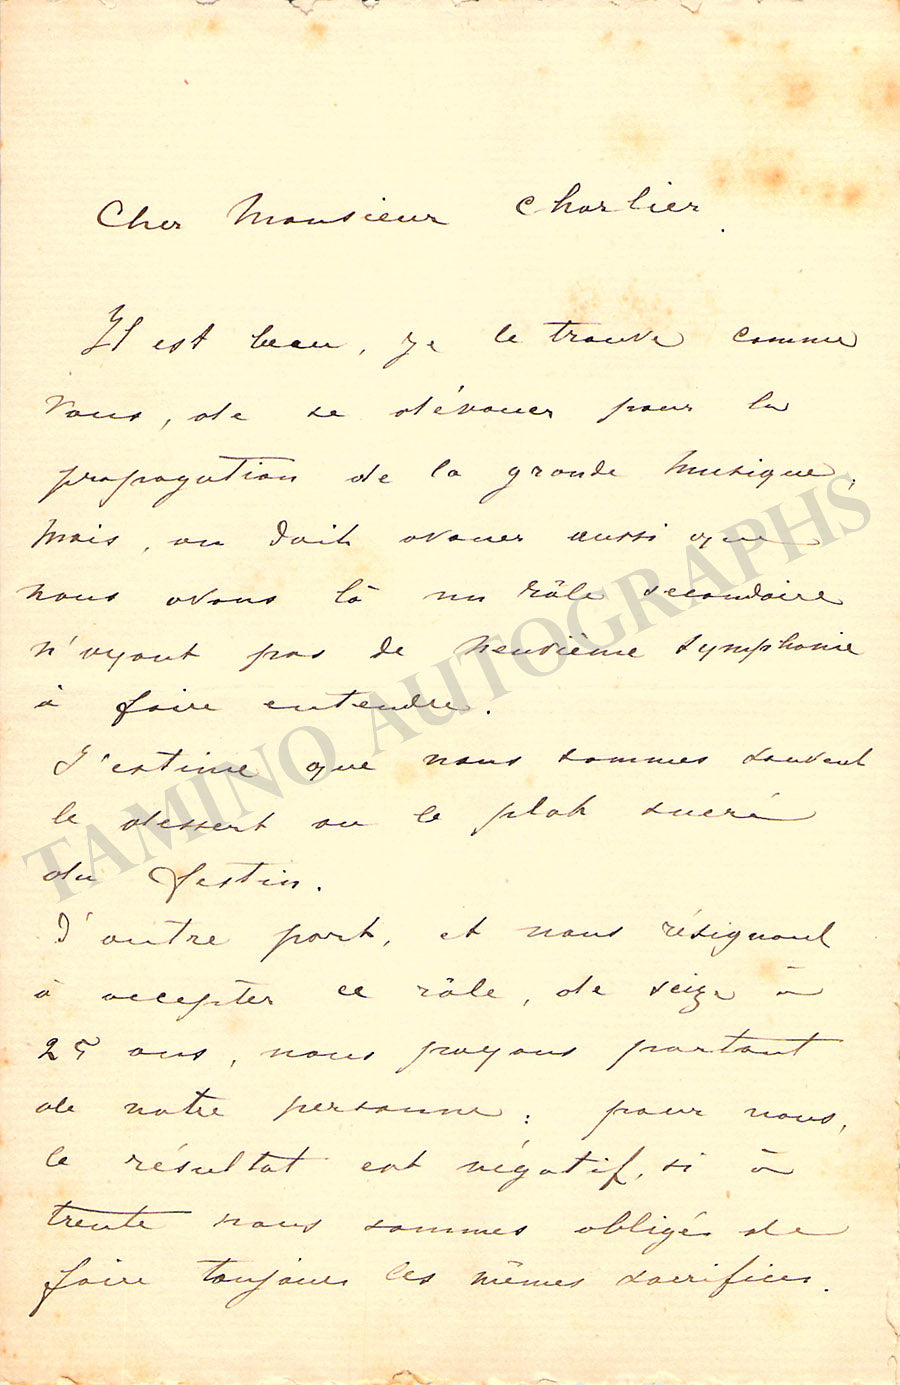 Cher Monsieur Charlier.
Il est beau, je le trouve comme
vous, de se dévouer pour la
propagation de la grande musique,
mais, on doit avouer aussi que
nous avons là un rôle secondaire
n'ayant pas de neuvième symphonie
à faire entendre.
J'estime que nous sommes souvent
le dessert ou le plat sucré
du festin.
D'autre part, et nous résignant
à accepter ce rôle, de seize à
25 ans, nous payons partout
de notre personne : pour nous,
le résultat est négatif, si à
trente nous sommes obligés de
faire toujours les mêmes sacrifices.
TAMINO AUTOGRAPHS